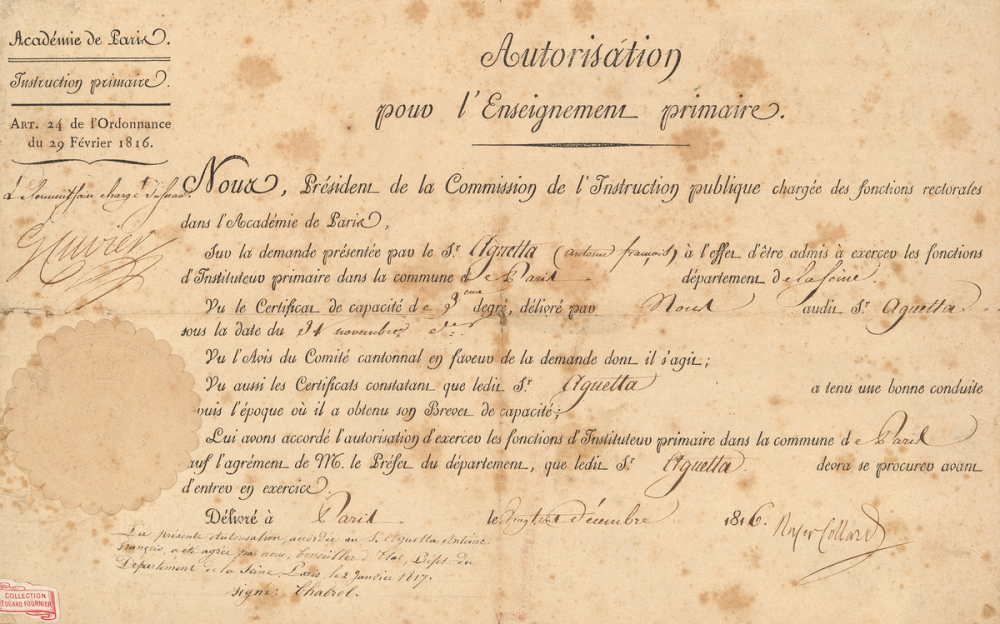 Académie de Paris.
Instruction primaire.
ART. 24 de l'Ordonnance
du 29 Février 1816.
chargé
G Cuvier
Autorisation
pour l'Enseignement primaire.
Nous, Président de la Commission de l'Instruction publique chargée des fonctions rectorales
dans l'Académie de Paris,
Sur la demande présentée par le Sr. Aguetta (antoine françois) à l'effet d'être admis à exercer les fonctions
d'Instituteur primaire dans la commune de Paris département de la Seine.
Vu le Certificat de capacité de 3eme degré, délivré par Nous audit Sr. Aguetta
sous la date du 21 novembre der.
Vu l'Avis du Comité cantonnal en faveur de la demande dont il s'agit;
Vu aussi les Certificats constatant que ledit Sr. Aguetta a tenu une bonne conduite
puis l'époque où il a obtenu son Brevet de capacité;
Lui avons accordé l'autorisation d'exercer les fonctions d'Instituteur primaire dans la commune de Paris
auf l'agrément de M. le Préfet du département, que ledit Sr. Aguetta devra se procurer avant
d'entrer en exercice.
Délivré à Paris le vingt décembre 1816. Royer Collard
La présente Autorisation, accordée au S. Aguetta Antoine
François, a été agréée par nous, Conseiller d'Etat, Préfet du
Département de la Seine, Paris, le 2 Janvier 1817.
signé: Chabrol.
COLLECTION
EDOUARD FOURNIER